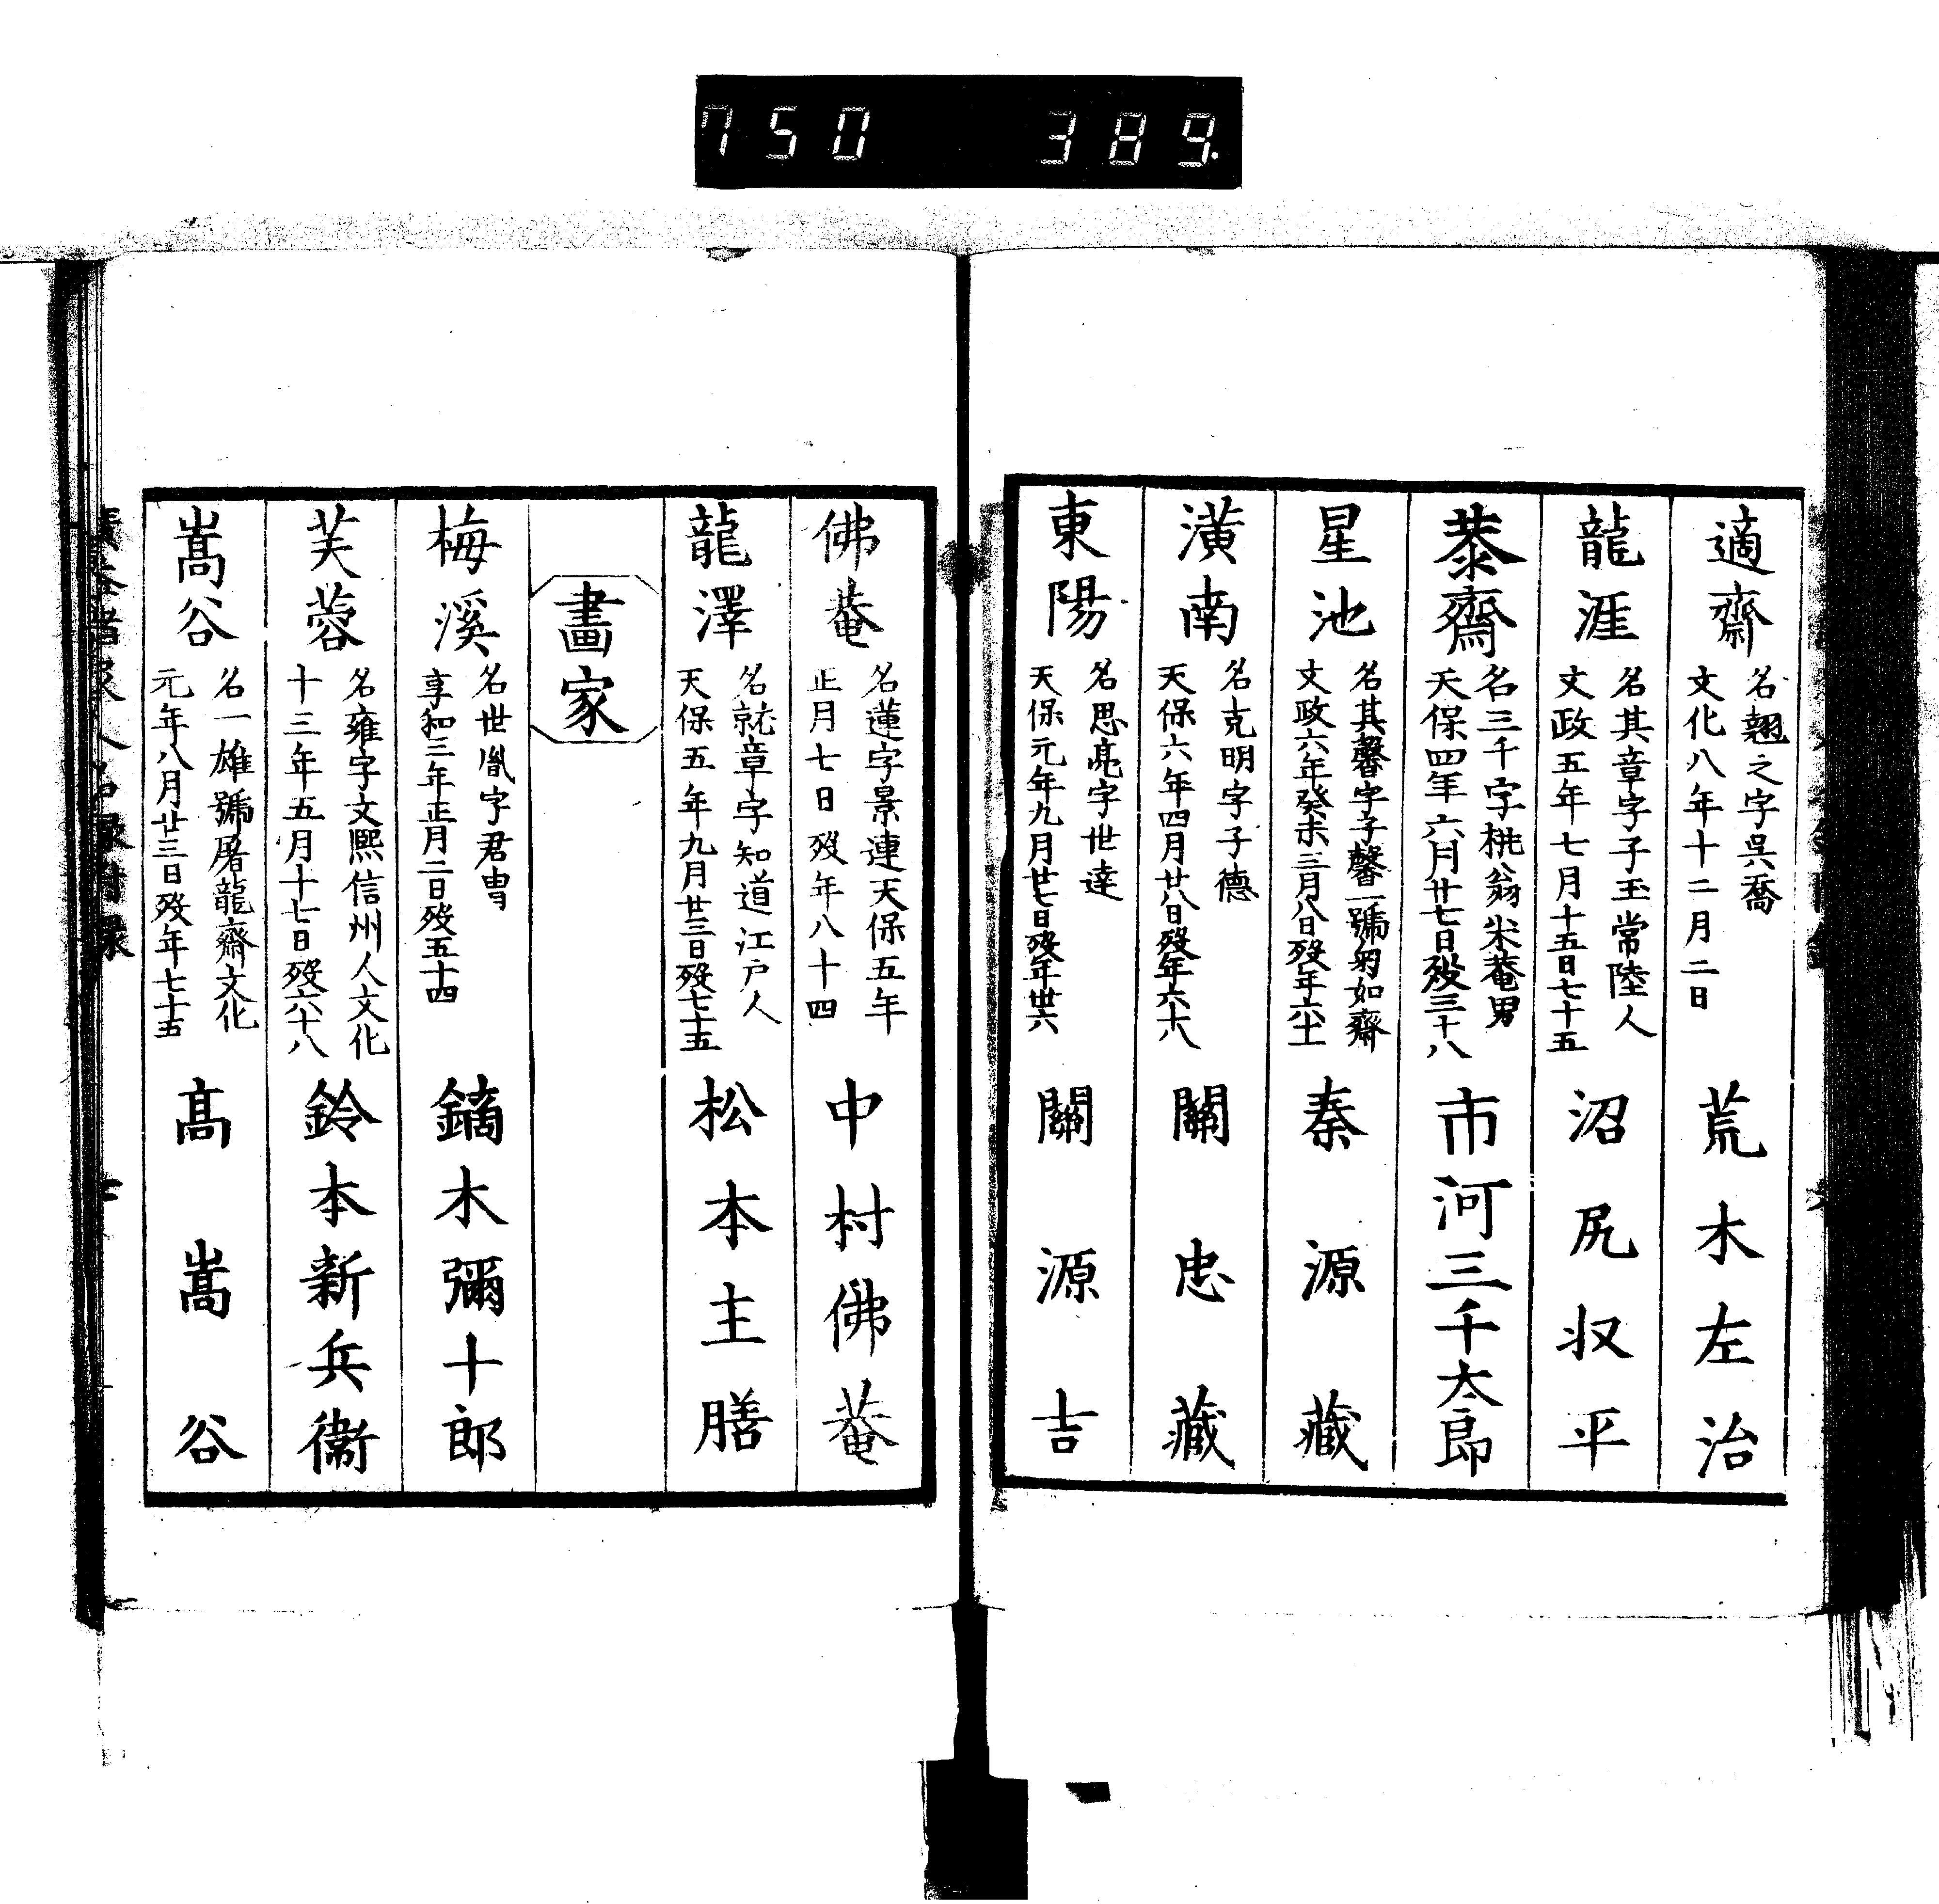 750 389.
適齋 名翹之字呉喬
文化八年十二月二日 荒木左治
龍涯 名其章字子玉常陸人
文政五年七月十五日七十五 沼尻収平
恭齋 名三千字桃翁米菴男
天保四年六月廿七日歿三十八 市河三千太郎
星池 名其馨字子馨一號匏如齋
文政六年癸未三月八日歿年六十一 秦源藏
潢南 名克明字子德
天保六年四月廿八日歿年六十八 關忠藏
東陽 名思亮字世達
天保元年九月廿七日歿年卅六 關源吉
佛菴 名蓮字景連天保五年
正月七日歿年八十四 中村佛菴
龍澤 名就章字知道江戸人
天保五年九月廿三日歿七十五 松本主膳
畫家
梅溪 名世胤字君冑
享和三年正月二日歿五十四 鏑木彌十郎
芙蓉 名雍字文熙信州人文化
十三年五月十七日歿六十八 鈴木新兵衞
嵩谷 名一雄號屠龍齋文化
元年八月廿三日歿年七十五 高嵩谷